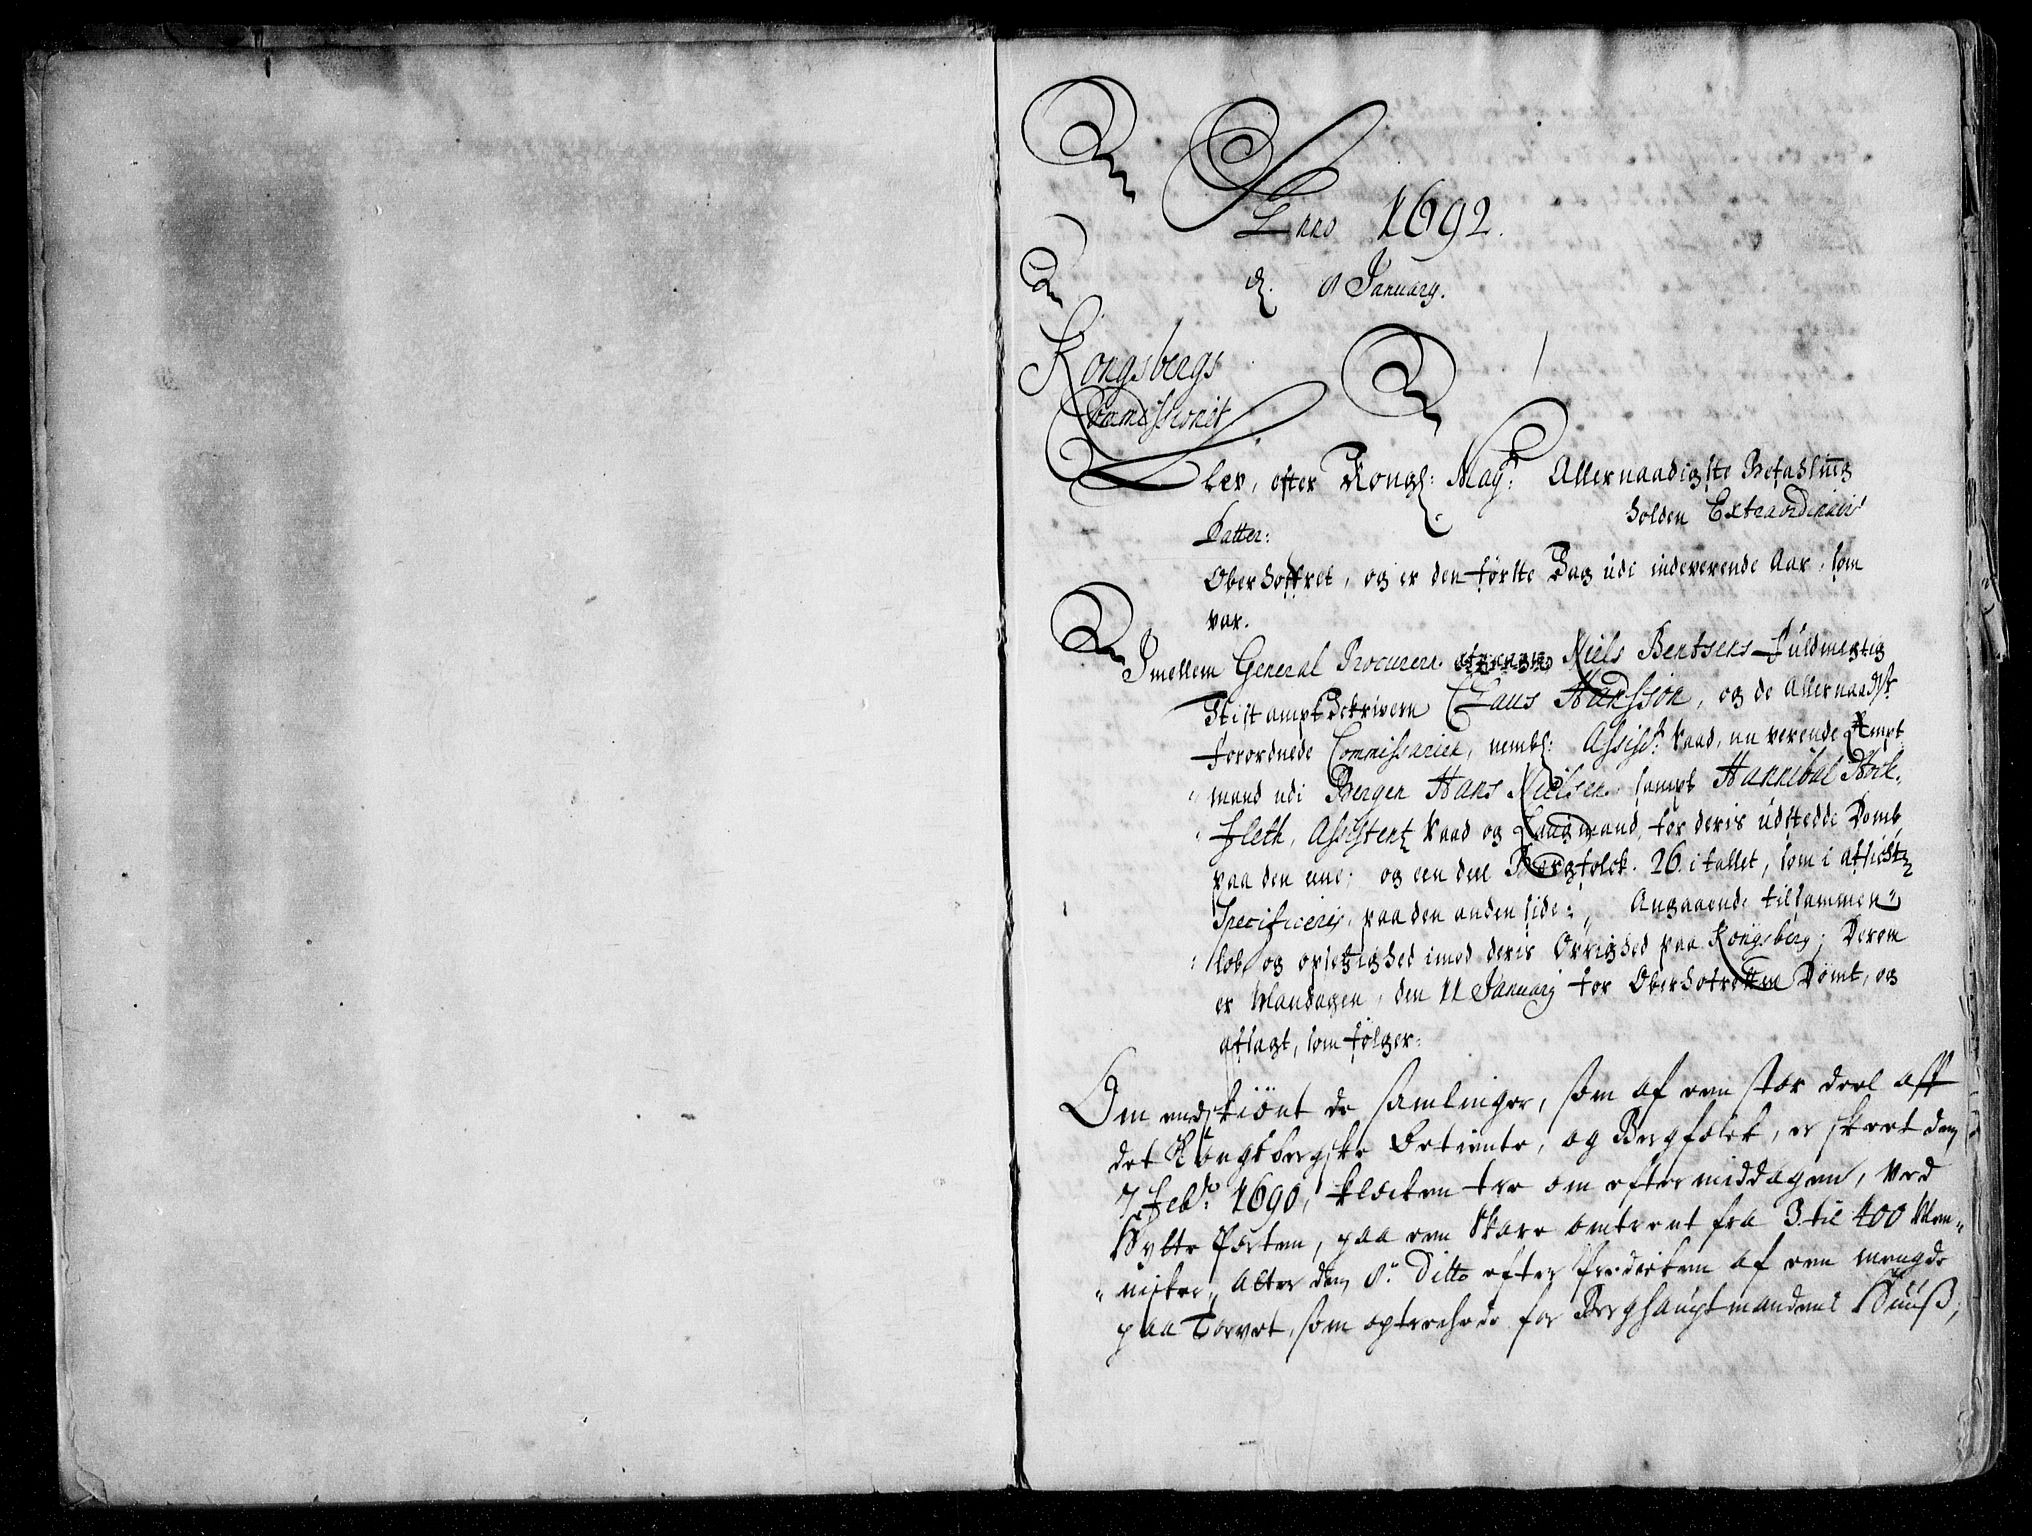 Anno 1692.
d. 8 January.
Kongsbergs
Commissionit
blev, efter Kongl: May: Allernaadigste Befahling
holden Extraordinair
Ratter:
Oberhoffret, og er den første Dag udi indeverende Aar, som
var.
Imellem General Procurern Niels Bentsens Fuldmegtig
Stiftamptskrivern Claus Hansson, og de Allernaadigst
forordnede Commissarier, nembl: Assist: Raad, nu verende Ampt
mand udi Bergen Hans Nielsen sampt Hannibal Stock-
fleth, Assistentz Raad og Laugmand, for deris udstedde Domb
paa den ene; og een deel Bergfolck. 26 i tallet, som i afsichten
Specificeris, paa den anden side; Angaaende tilsammen-
løb og opsetzighed imod deris Øvrighed paa Kongsberg; Derom
er Mandagen, den 11 January for Oberhofretten Dømt, og
afsagt, som følger:
Om endskiönt de samlinger, som af een stor deel aff
det Kongsbergske Betiente, og Bergfolck, er skeet den
7 Feb: 1690, klocken tre om eftermiddagen, ved
Hytte Porten, paa een Skare omtrent fra 3 til 400 Men-
nisker, Atter den 8 Ditto efter Predicken af een mengde
paa Torvet, som optreckede for Berghauptmandens Huuß,